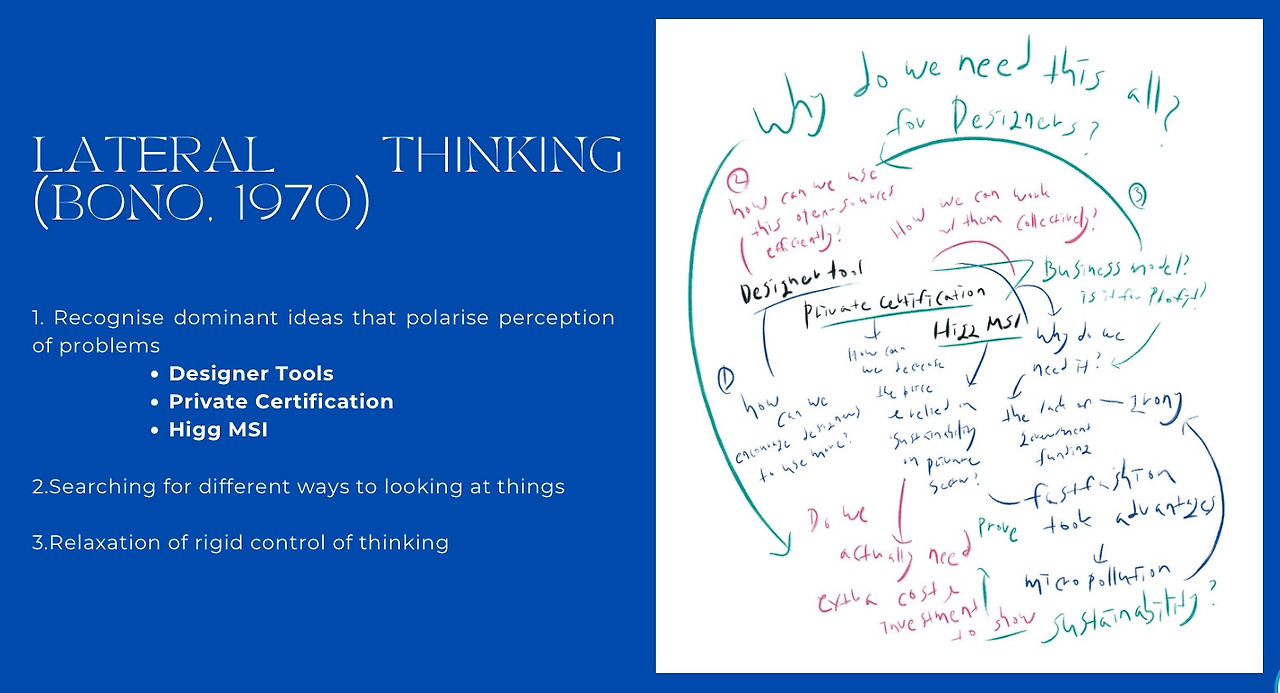 LATERAL THINKING
(BONO, 1970)
1. Recognise dominant ideas that polarise perception
of problems
• Designer Tools
• Private Certification
• Higg MSI
2.Searching for different ways to looking at things
3.Relaxation of rigid control of thinking
Why do we need this all?
for Designers?
②
how can we use
this open-sources
efficiently?
How we can work
w/ them collectively?
③
Business model?
is it for Profit?
Designer tool
Private Certification
Higg MSI
Why do we
need it?
①
how
can we
encourage designers
to use more?
How can
we decrease
the
& relied in
sustainability
in private
sector?
the lack of
Government
funding
Irony
fastfashion
took advantages
micropollution
Do we
actually need
extra cost &
investment
to show
Prove
sustainability?